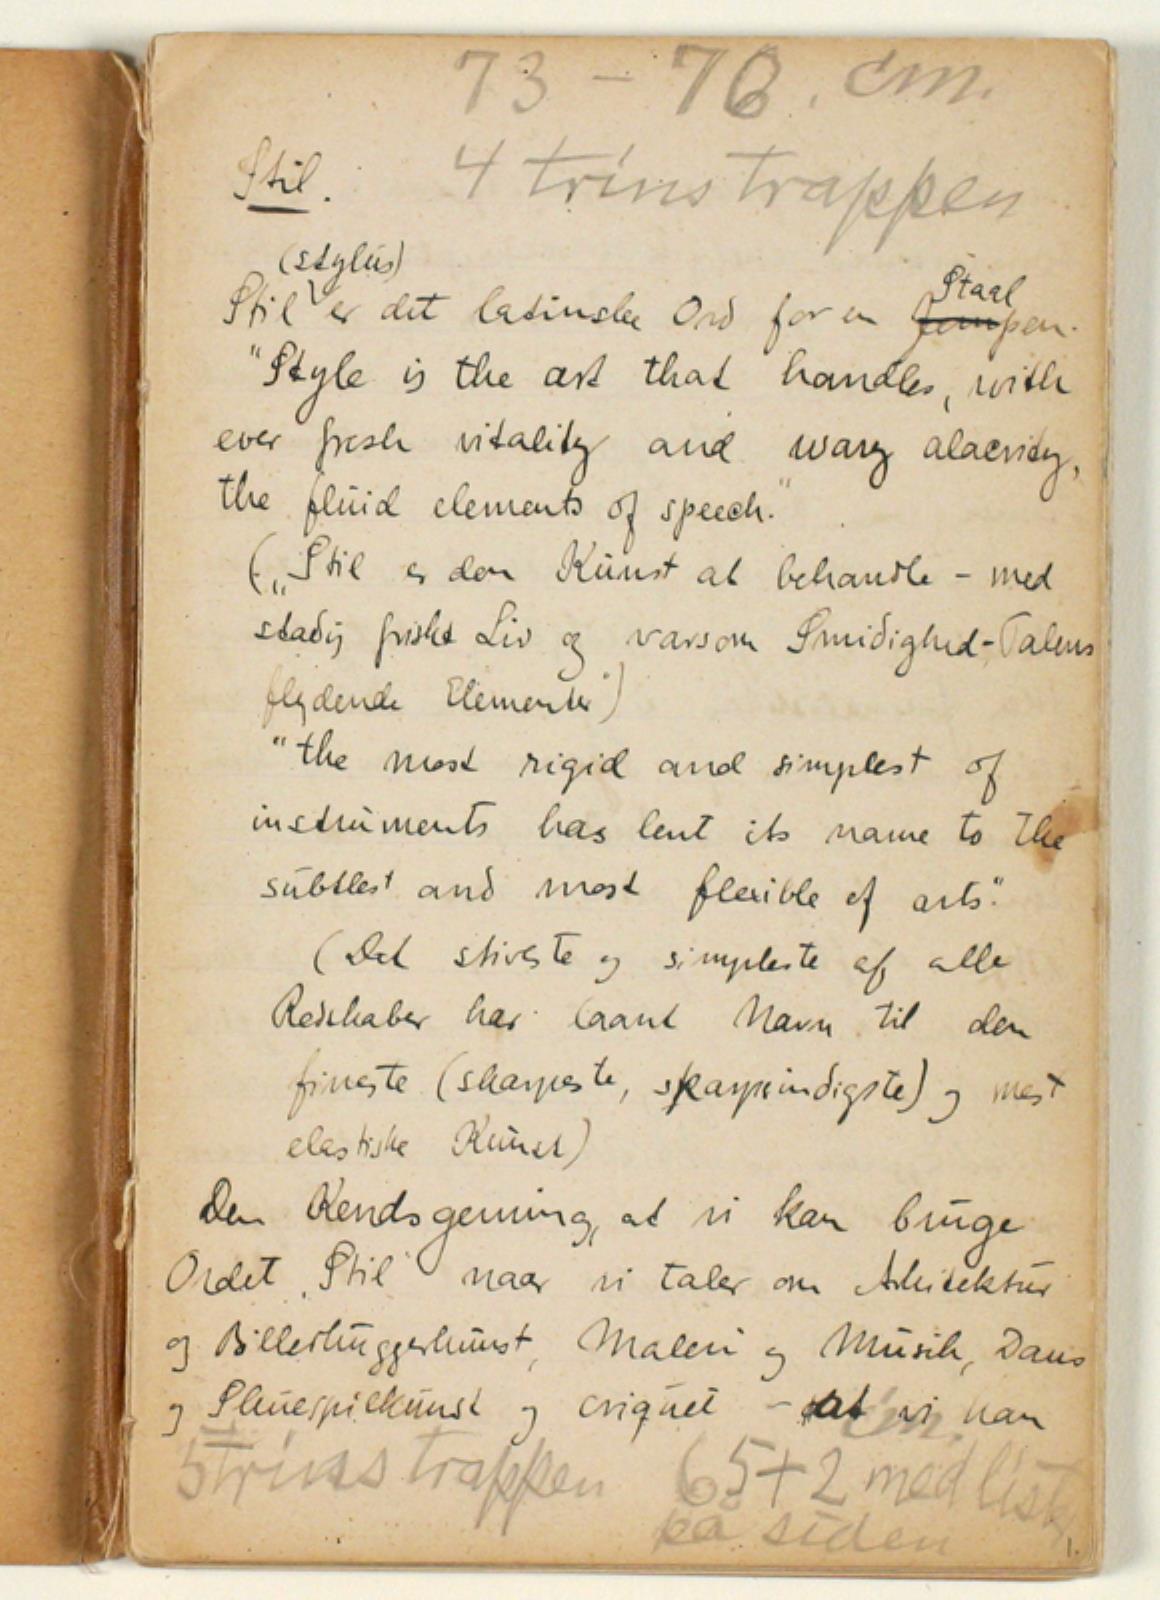 73 – 76. cm.
4 trins trappen
Stil.
(stylus)
Stil er det latinske Ord for en Staal
Jernpen.
"Style is the art that handles, with
ever fresh vitality and wary alacrity,
the fluid elements of speech."
("Stil er den Kunst at behandle – med
stadig friskt Liv og varsom Smidighed – Talens
flydende Elementer")
"the most rigid and simplest of
instruments has lent its name to the
subtlest and most flexible of arts".
(Det stiveste og simpleste af alle
Redskaber har laant Navn til den
fineste (skarpeste, skarpsindigste) og mest
elastiske Kunst)
Den Kendsgerning, at vi kan bruge
Ordet "Stil" naar vi taler om Arkitektur
og Billedhuggerkunst, Maleri og Musik, Dans
og Skuespilkunst og criquet – at vi kan
5 trins trappen 65+2 med liste
på siden
1.